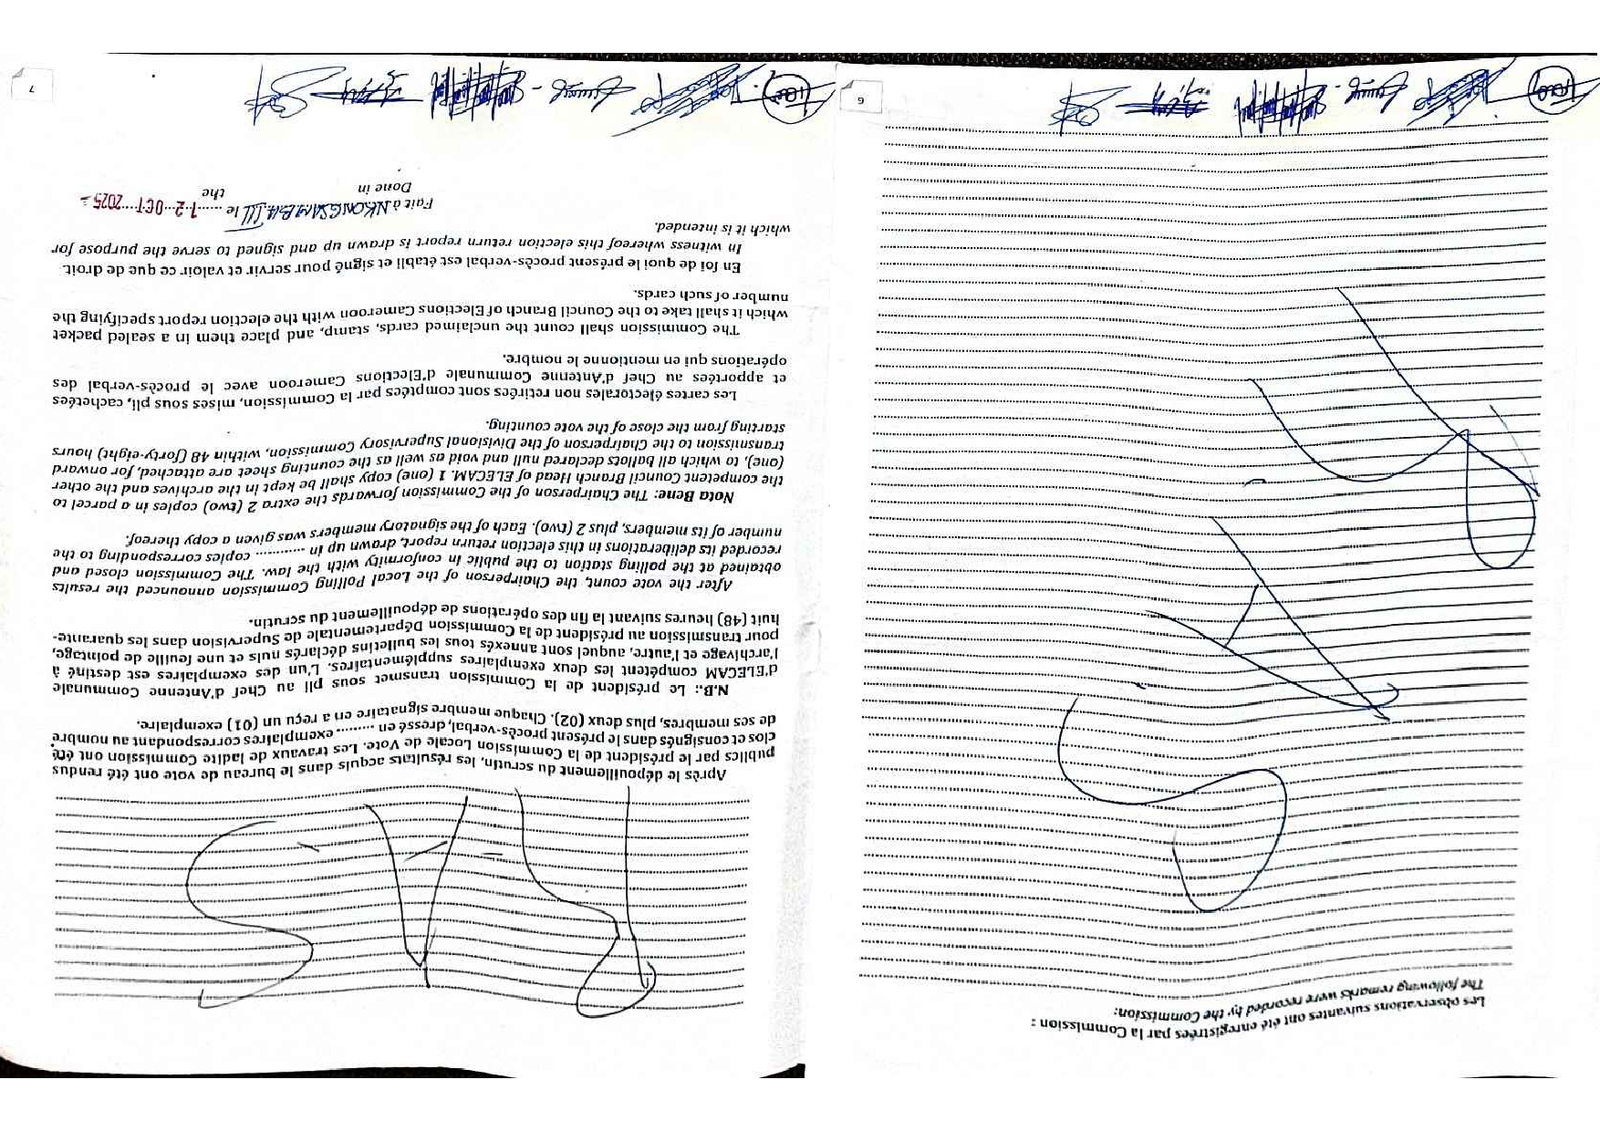 Les observations suivantes ont été enregistrées par la Commission :
The following remarks were recorded by the Commission:
RAS
6
RAS
Après le dépouillement du scrutin, les résultats acquis dans le bureau de vote ont été rendus
publics par le président de la Commission Locale de Vote. Les travaux de ladite Commission ont été
clos et consignés dans le présent procès-verbal, dressé en ......... exemplaires correspondant au nombre
de ses membres, plus deux (02). Chaque membre signataire en a reçu un (01) exemplaire.
N.B.: Le président de la Commission transmet sous pli au Chef d'Antenne Communale
d'ELECAM compétent les deux exemplaires supplémentaires. L'un des exemplaires est destiné à
l'archivage et l'autre, auquel sont annexés tous les bulletins déclarés nuls et une feuille de pointage,
pour transmission au président de la Commission Départementale de Supervision dans les quarante-
huit (48) heures suivant la fin des opérations de dépouillement du scrutin.
After the vote count, the Chairperson of the Local Polling Commission announced the results
obtained at the polling station to the public in conformity with the law. The Commission closed and
recorded its deliberations in this election return report, drawn up in ............ copies corresponding to the
number of its members, plus 2 (two). Each of the signatory members was given a copy thereof.
Nota Bene: The Chairperson of the Commission forwards the extra 2 (two) copies in a parcel to
the competent Council Branch Head of ELECAM. 1 (one) copy shall be kept in the archives and the other
(one), to which all ballots declared null and void as well as the counting sheet are attached, for onward
transmission to the Chairperson of the Divisional Supervisory Commission, within 48 (forty-eight) hours
starting from the close of the vote counting.
Les cartes électorales non retirées sont comptées par la Commission, mises sous pli, cachetées
et apportées au Chef d'Antenne Communale d'Elections Cameroon avec le procès-verbal des
opérations qui en mentionne le nombre.
The Commission shall count the unclaimed cards, stamp, and place them in a sealed packet
which it shall take to the Council Branch of Elections Cameroon with the election report specifying the
number of such cards.
En foi de quoi le présent procès-verbal est établi et signé pour servir et valoir ce que de droit.
In witness whereof this election return report is drawn up and signed to serve the purpose for
which it is intended.
Fait à NKONGSAMBA III le 12 OCT 2025
Done in the
7